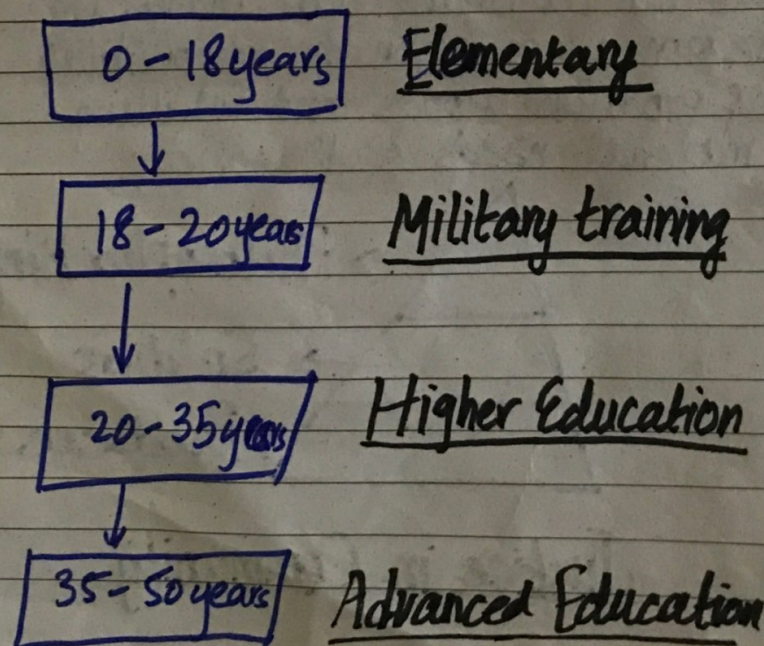 0-18years Elementary
18-20years Military training
20-35years Higher Education
35-50years Advanced Education